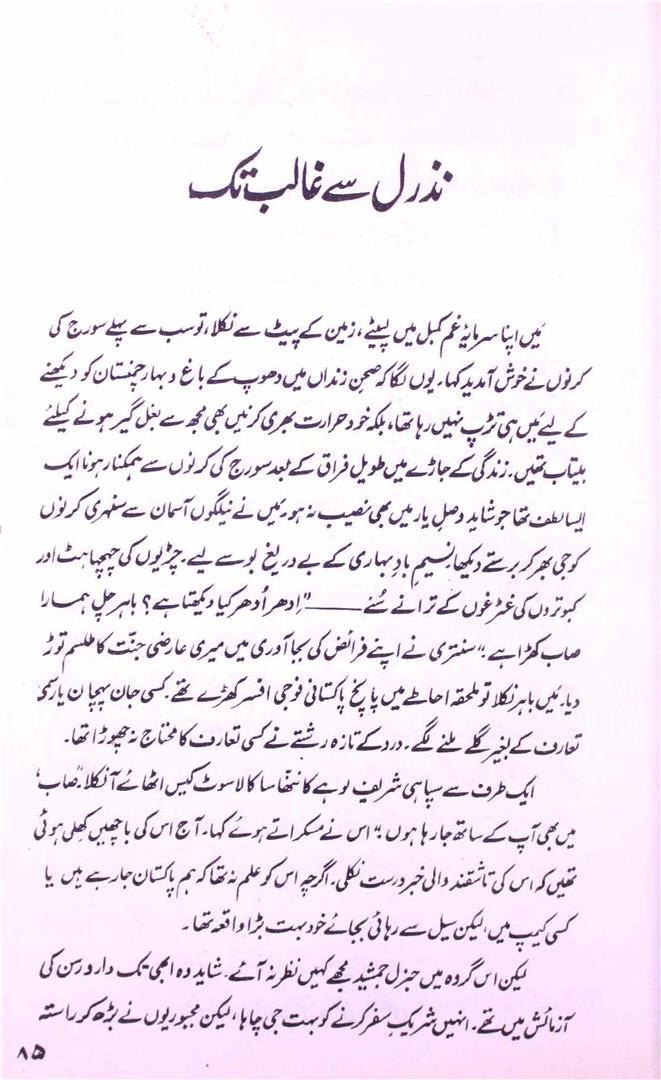 نذرل سے غالب تک
میں اپنا سرمایۂ غم کمبل میں لپیٹے، زمین کے پیٹ سے نکلا، تو سب سے پہلے سورج کی
کرنوں نے خوش آمدید کہا۔ یوں لگا کہ صحنِ زنداں میں دھوپ کے باغ و بہار چمنستان کو دیکھنے
کے لیے میں ہی تڑپ نہیں رہا تھا، بلکہ خود حرارت بھری کرنیں بھی مجھ سے بغل گیر ہونے کیلئے
بیتاب تھیں۔ زندگی کے جاڑے میں طویل فراق کے بعد سورج کی کرنوں سے ہمکنار ہونا ایک
ایسا لطف تھا جو شاید وصلِ یار میں بھی نصیب نہ ہو۔ میں نے نیلگوں آسمان سے سنہری کرنوں
کو جی بھر کر برستے دیکھا، نسیم بادِ بہاری کے بے دریغ بوسے لیے۔ چڑیوں کی چہچہاہٹ اور
کبوتروں کی غٹرغوں کے ترانے سُنے ——— "اِدھر اُدھر کیا دیکھتا ہے؟ باہر چل ہمارا
صاب کھڑا ہے۔" سنتری نے اپنے فرائض کی بجا آوری میں میری عارضی جنّت کا طلسم توڑ
دیا۔ میں باہر نکلا تو ملحقہ احاطے میں پانچ پاکستانی فوجی افسر کھڑے تھے۔ کسی جان پہچان یا رسمی
تعارف کے بغیر گلے ملنے لگے۔ درد کے تازہ رشتے نے کسی تعارف کا محتاج نہ چھوڑا تھا۔
ایک طرف سے سپاہی شریف لوہے کا ننھا سا کالا سوٹ کیس اٹھائے آ نکلا۔ "صاب،
میں بھی آپ کے ساتھ جا رہا ہوں" اس نے مسکراتے ہوئے کہا۔ آج اس کی باچھیں کھلی ہوئی
تھیں کہ اس کی تاشقند والی خبر درست نکلی۔ اگرچہ اس کو علم نہ تھا کہ ہم پاکستان جا رہے ہیں یا
کسی کیمپ میں، لیکن سیل سے رہائی بجائے خود بہت بڑا واقعہ تھا۔
لیکن اس گروہ میں جنرل جمشید مجھے کہیں نظر نہ آئے۔ شاید وہ ابھی تک دار و رسن کی
آزمائش میں تھے۔ انہیں شریکِ سفر کرنے کو بہت جی چاہا، لیکن مجبوریوں نے بڑھ کر راستہ
۸۵